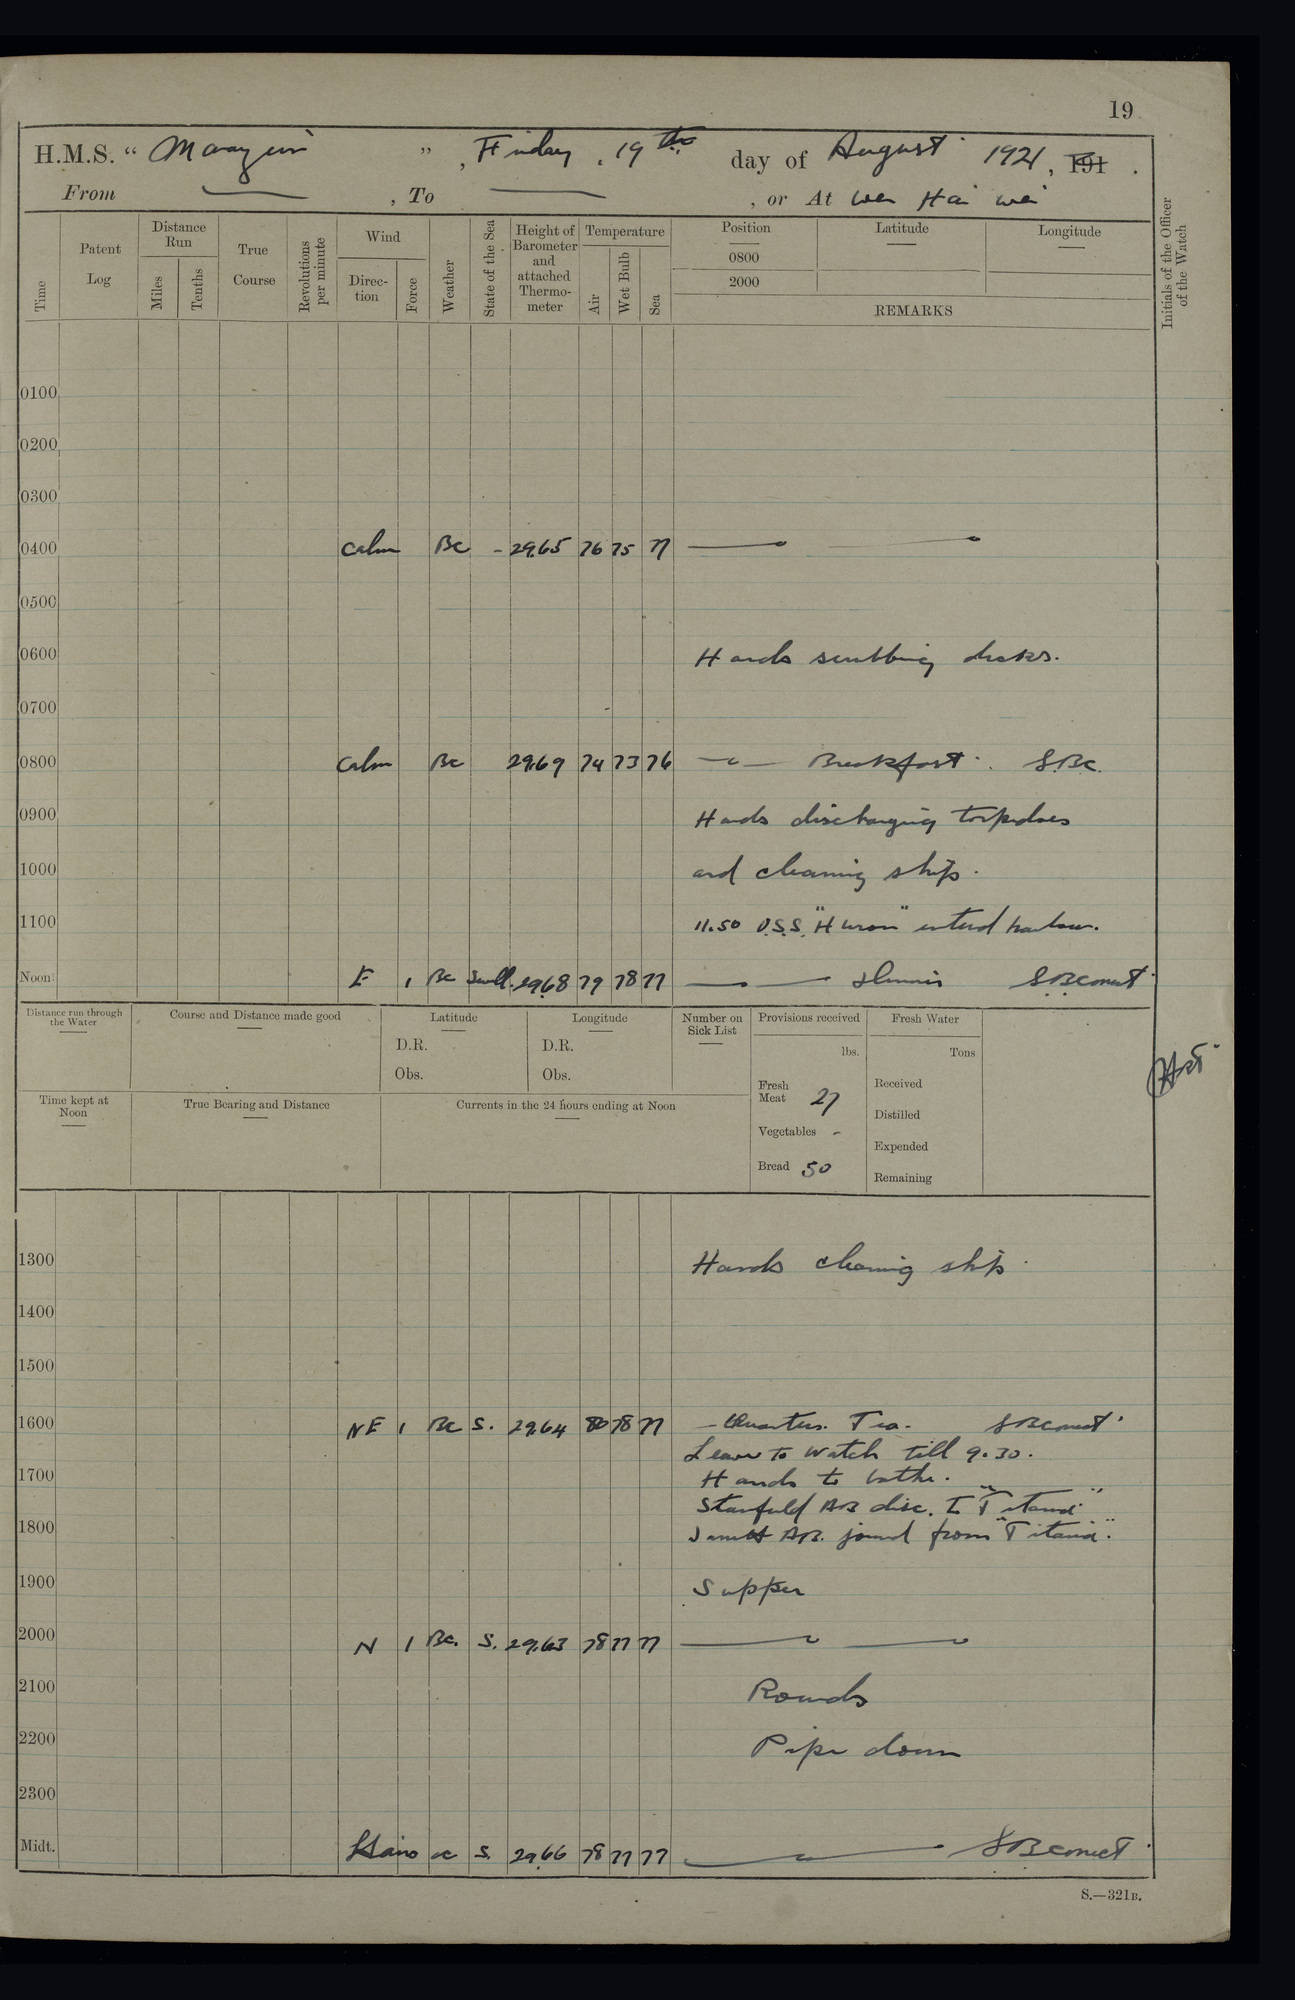 19
H.M.S. " Marazion " , Friday , 19th day of August 1921, 191 .
From , To , or At Wei Hai Wei
Time
Patent Log
Distance Run
Miles
Tenths
True Course
Revolutions per minute
Wind
Direc-tion
Force
Weather
State of the Sea
Height of Barometer and attached Thermo-meter
Temperature
Air
Wet Bulb
Sea
Position
0800
2000
Latitude
Longitude
REMARKS
Initials of the Officer of the Watch
0100
0200
0300
0400 Calm Bc - 29.65 76 75 77
0500
0600 Hands scrubbing decks.
0700
0800 Calm Bc 29.69 74 73 76 Breakfast. S.B.C.
0900 Hands discharging torpedoes
1000 and cleaning ship.
1100 11.50 U.S.S. "Huron" entered harbour.
Noon E 1 Bc Swell. 29.68 79 78 77 Dinner S.B.C
Distance run through the Water
Course and Distance made good
Latitude
D.R.
Obs.
Longitude
D.R.
Obs.
Number on Sick List
Provisions received
lbs.
Fresh Meat 27
Vegetables -
Bread 50
Fresh Water
Tons
Received
Distilled
Expended
Remaining
Time kept at Noon
True Bearing and Distance
Currents in the 24 hours ending at Noon
1300 Hands cleaning ship.
1400
1500
1600 NE 1 Bc S. 29.64 80 78 77 - Quarters. Tea.
Leave to Watch till 9.30.
1700 Hands to bathe.
AB disc. to "Titania"
1800 AB. joined from "Titania".
1900 Supper
2000 N 1 Bc. S. 29.63 78 77 77
2100 Rounds
2200 Pipe down
2300
Midt. S. 29.66 78 77 77
S.—321B.